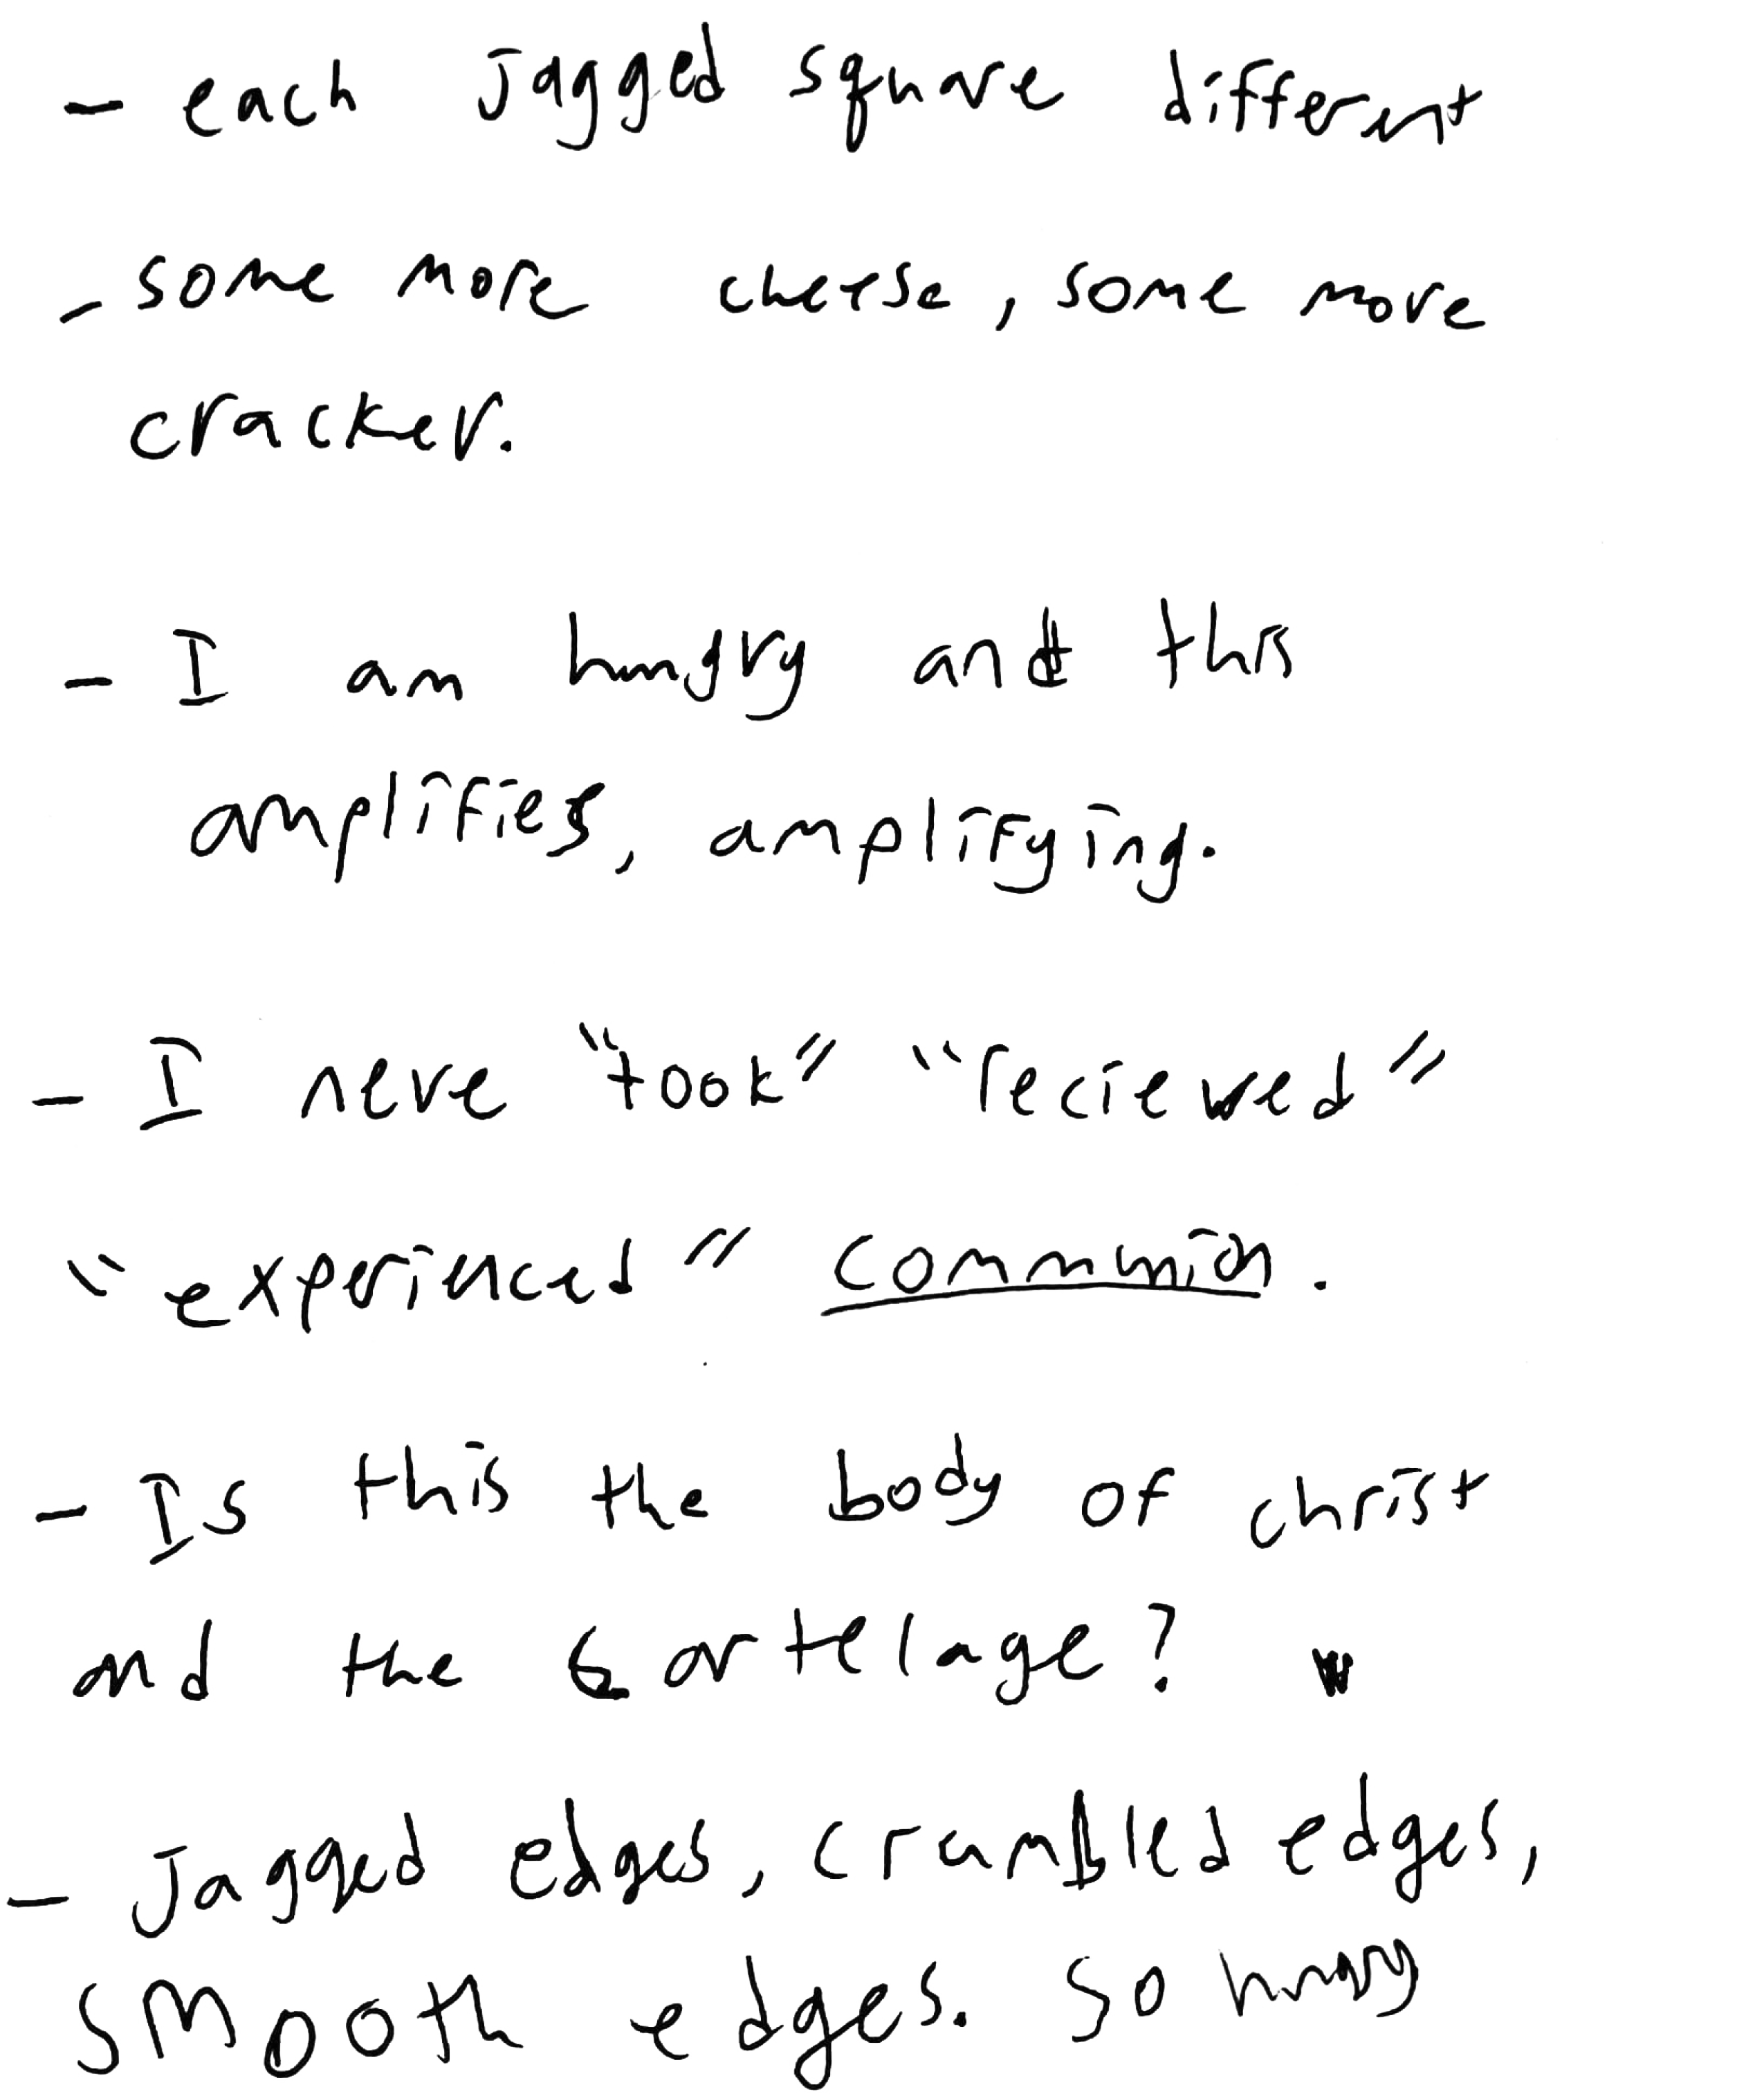 - each jagged square different
- some more cheese, some more
cracker.
- I am hungry and this
amplifies, amplifying.
- I neve "took" "recieved"
"experienced" communion.
- Is this the body of christ
and the cartelage?
- Jagged edges, crumbled edges,
smooth edges. so hungry